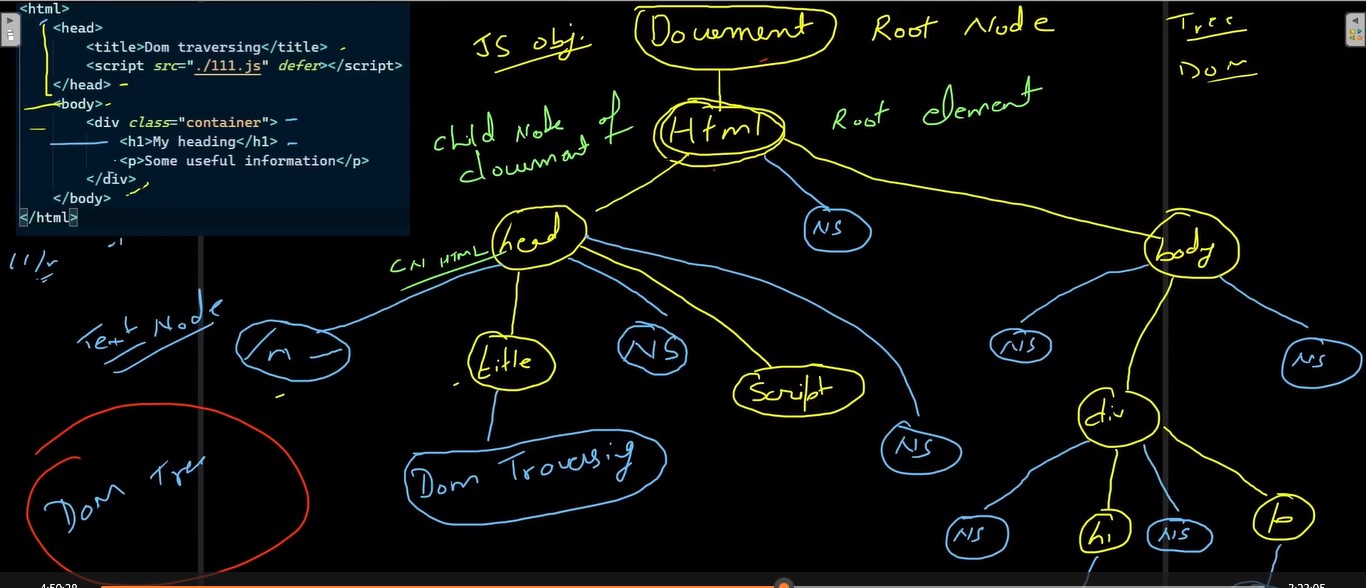 <html>
<head>
<title>Dom traversing</title>
<script src="./111.js" defer></script>
</head>
<body>
<div class="container">
<h1>My heading</h1>
<p>Some useful information</p>
</div>
</body>
</html>
JS obj.
Document
Root Node
Tree
DOM
child Node of
document
Html
Root element
head
NS
body
CN HTML
Text Node
/n
title
NS
Script
NS
NS
NS
Dom Traversing
div
Dom Tre
NS
h1
NS
p
4:50:28
3:22:05